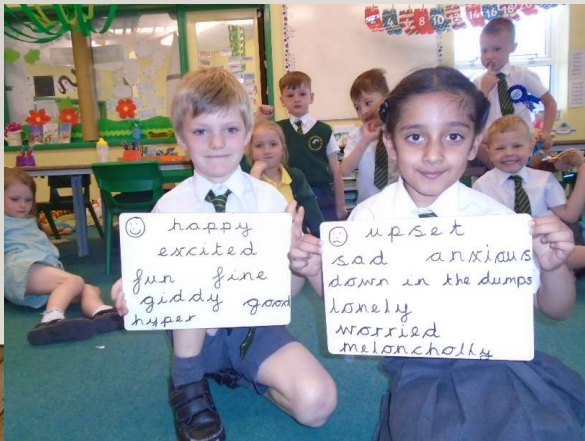 happy
excited
fun fine
giddy good
hyper
upset
sad anxious
down in the dumps
lonely
worried
meloncholly
4 6 8 10 12 14 16 18